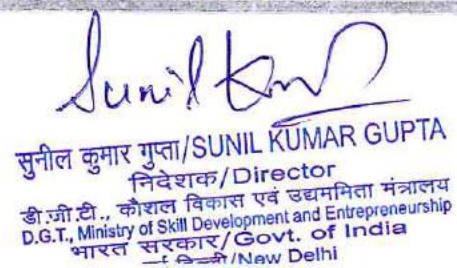 Sunil Kum
सुनील कुमार गुप्ता/SUNIL KUMAR GUPTA
निदेशक/Director
डी.जी.टी., कौशल विकास एवं उद्यममिता मंत्रालय
D.G.T., Ministry of Skill Development and Entrepreneurship
भारत सरकार/Govt. of India
नई दिल्ली/New Delhi